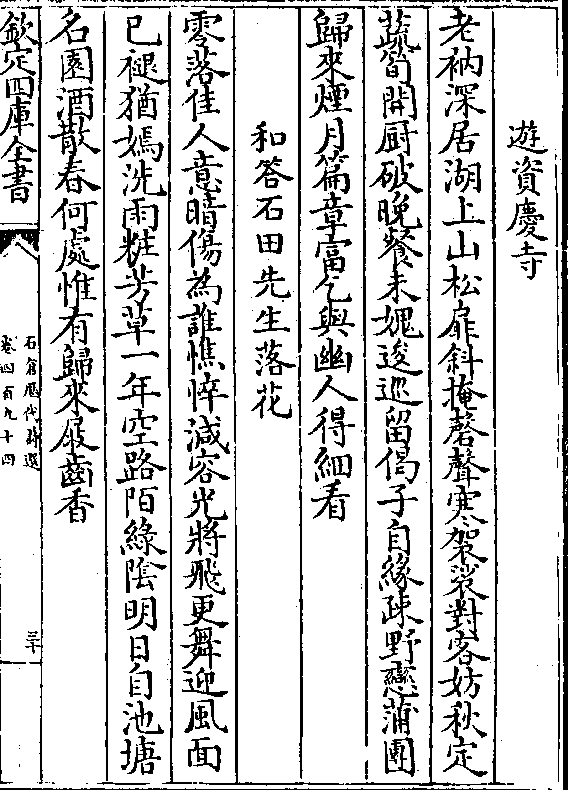 遊資慶寺
老衲深居湖上山松扉斜掩磬聲寒袈裟對客妨秋定
蔬筍開厨破晚餐未媿逡巡留偈子自緣疎野戀蒲團
歸來煙月篇章富乞與幽人得細看
和答石田先生落花
零落佳人意暗傷為誰憔悴減容光將飛更舞迎風面
已褪猶嫣洗雨粧芳草一年空路陌綠陰明日自池塘
名園酒散春何處惟有歸來屐齒香
欽定四庫全書
石倉歷代詩選
卷四百九十四
三十